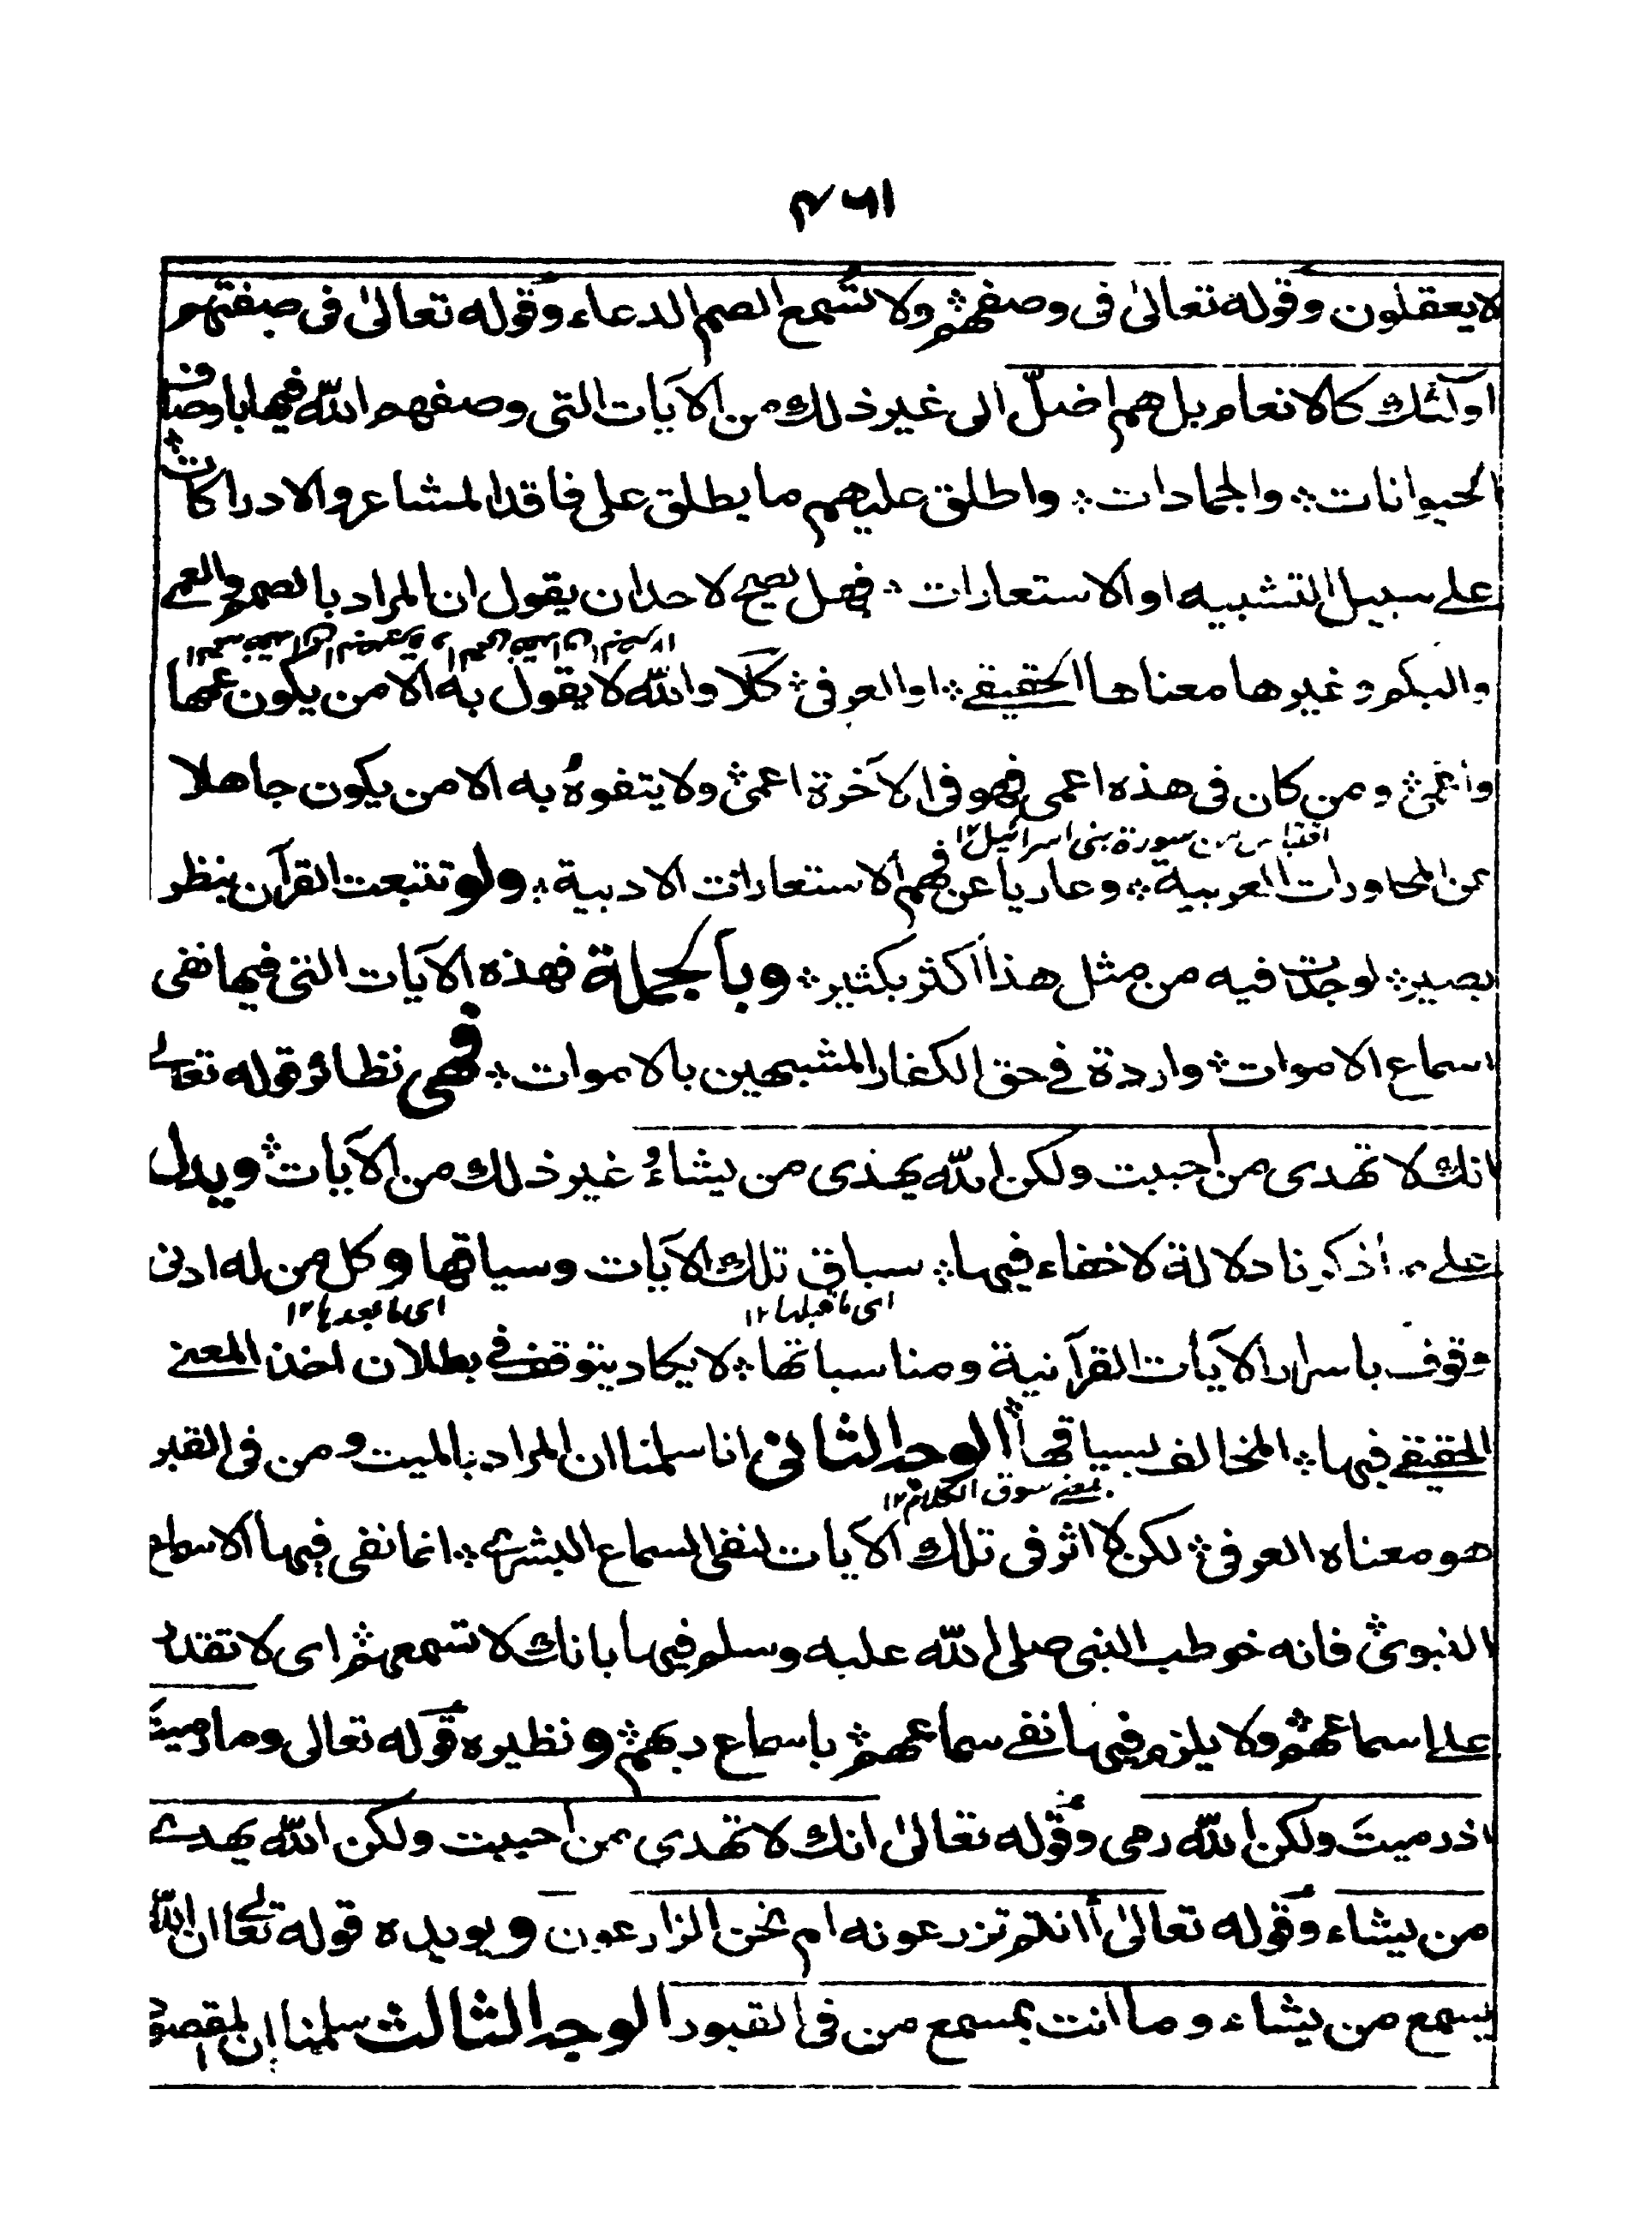 ۴۶۱
لا يعقلون وقوله تعالىٰ فى وصفهم ولا تسمع الصم الدعاء وقوله تعالىٰ فى صفتهم
اولٓئك كالانعام بل هم اضلّ الى غير ذلك من الآيات التى وصفهم الله فيها باوصاف
الحيوانات؞ والجمادات؞ واطلق عليهم ما يطلق على فاقد المشاعر والادراكات؞
على سبيل التشبيه او الاستعارات؞ فهل يصح لاحد ان يقول ان المراد بالصم والعمے
والبكم وغيرها معناها الحقيقے؞ او العرفى؞ كَلَّا والله لا يقول به الا من يكون عمها
واعمى؞ ومن كان فى هذه اعمى فهو فى الآخرة اعمى؞ ولا يتفوهُ به الا من يكون جاهلا
اقتباس من سورة بنى اسرائيل ١٢
عن المحاورات العربية؞ وعاريا عن فهم الاستعارات الادبية؞ ولو تتبعت القرآن بنظر
بصير؞ لوجدت فيه من مثل هذا اكثر بكثير؞ وبالجملة فهذه الآيات التى فيها نفى
اسماع الاموات؞ واردة فے حق الكفار المشبهين بالاموات؞ فهى نظائر قوله تعالے
انك لا تهدى من احببت ولكن الله يهدى من يشاءُ وغير ذلك من الآيات؞ ويدل
على ما ذكرنا دلالة لا خفاء فيها؞ سباق تلك الآيات وسياقها وكل من له ادنى
اى ما قبلها ١٢ اى ما بعدها ١٢
وقوف باسرار الآيات القرآنية ومناسباتها؞ لا يكاد يتوقف فے بطلان اخذ المعنے
الحقيقے فيها؞ المخالف لسياقها؞ الوجه الثانى انا سلمنا ان المراد بالميت ومن فى القبر
بمعنے سوق الكلام ١٢
هو معناه العرفى؞ لكن لا اثر فى تلك الآيات لنفى السماع البشرے؞ انما نفى فيها الاسماع
النبوى؞ فانه خوطب النبى صلى الله عليه وسلم فيها بانك لا تسمعهم؞ اى لا تقدر
على اسماعهم؞ ولا يلزم فيها نفے سماعهم؞ باسماع ربهم؞ ونظيره قوله تعالى وما رميتَ
اذ رميتَ ولكن الله رمى وقوله تعالىٰ انك لا تهدى من احببت ولكن الله يهدے
من يشاء وقوله تعالىٰ أانتم تزرعونه ام نحن الزارعون ويويده قوله تعالے ان الله
يسمع من يشاء وما انت بمسمع من فى القبور الوجه الثالث سلمنا ان المقصود